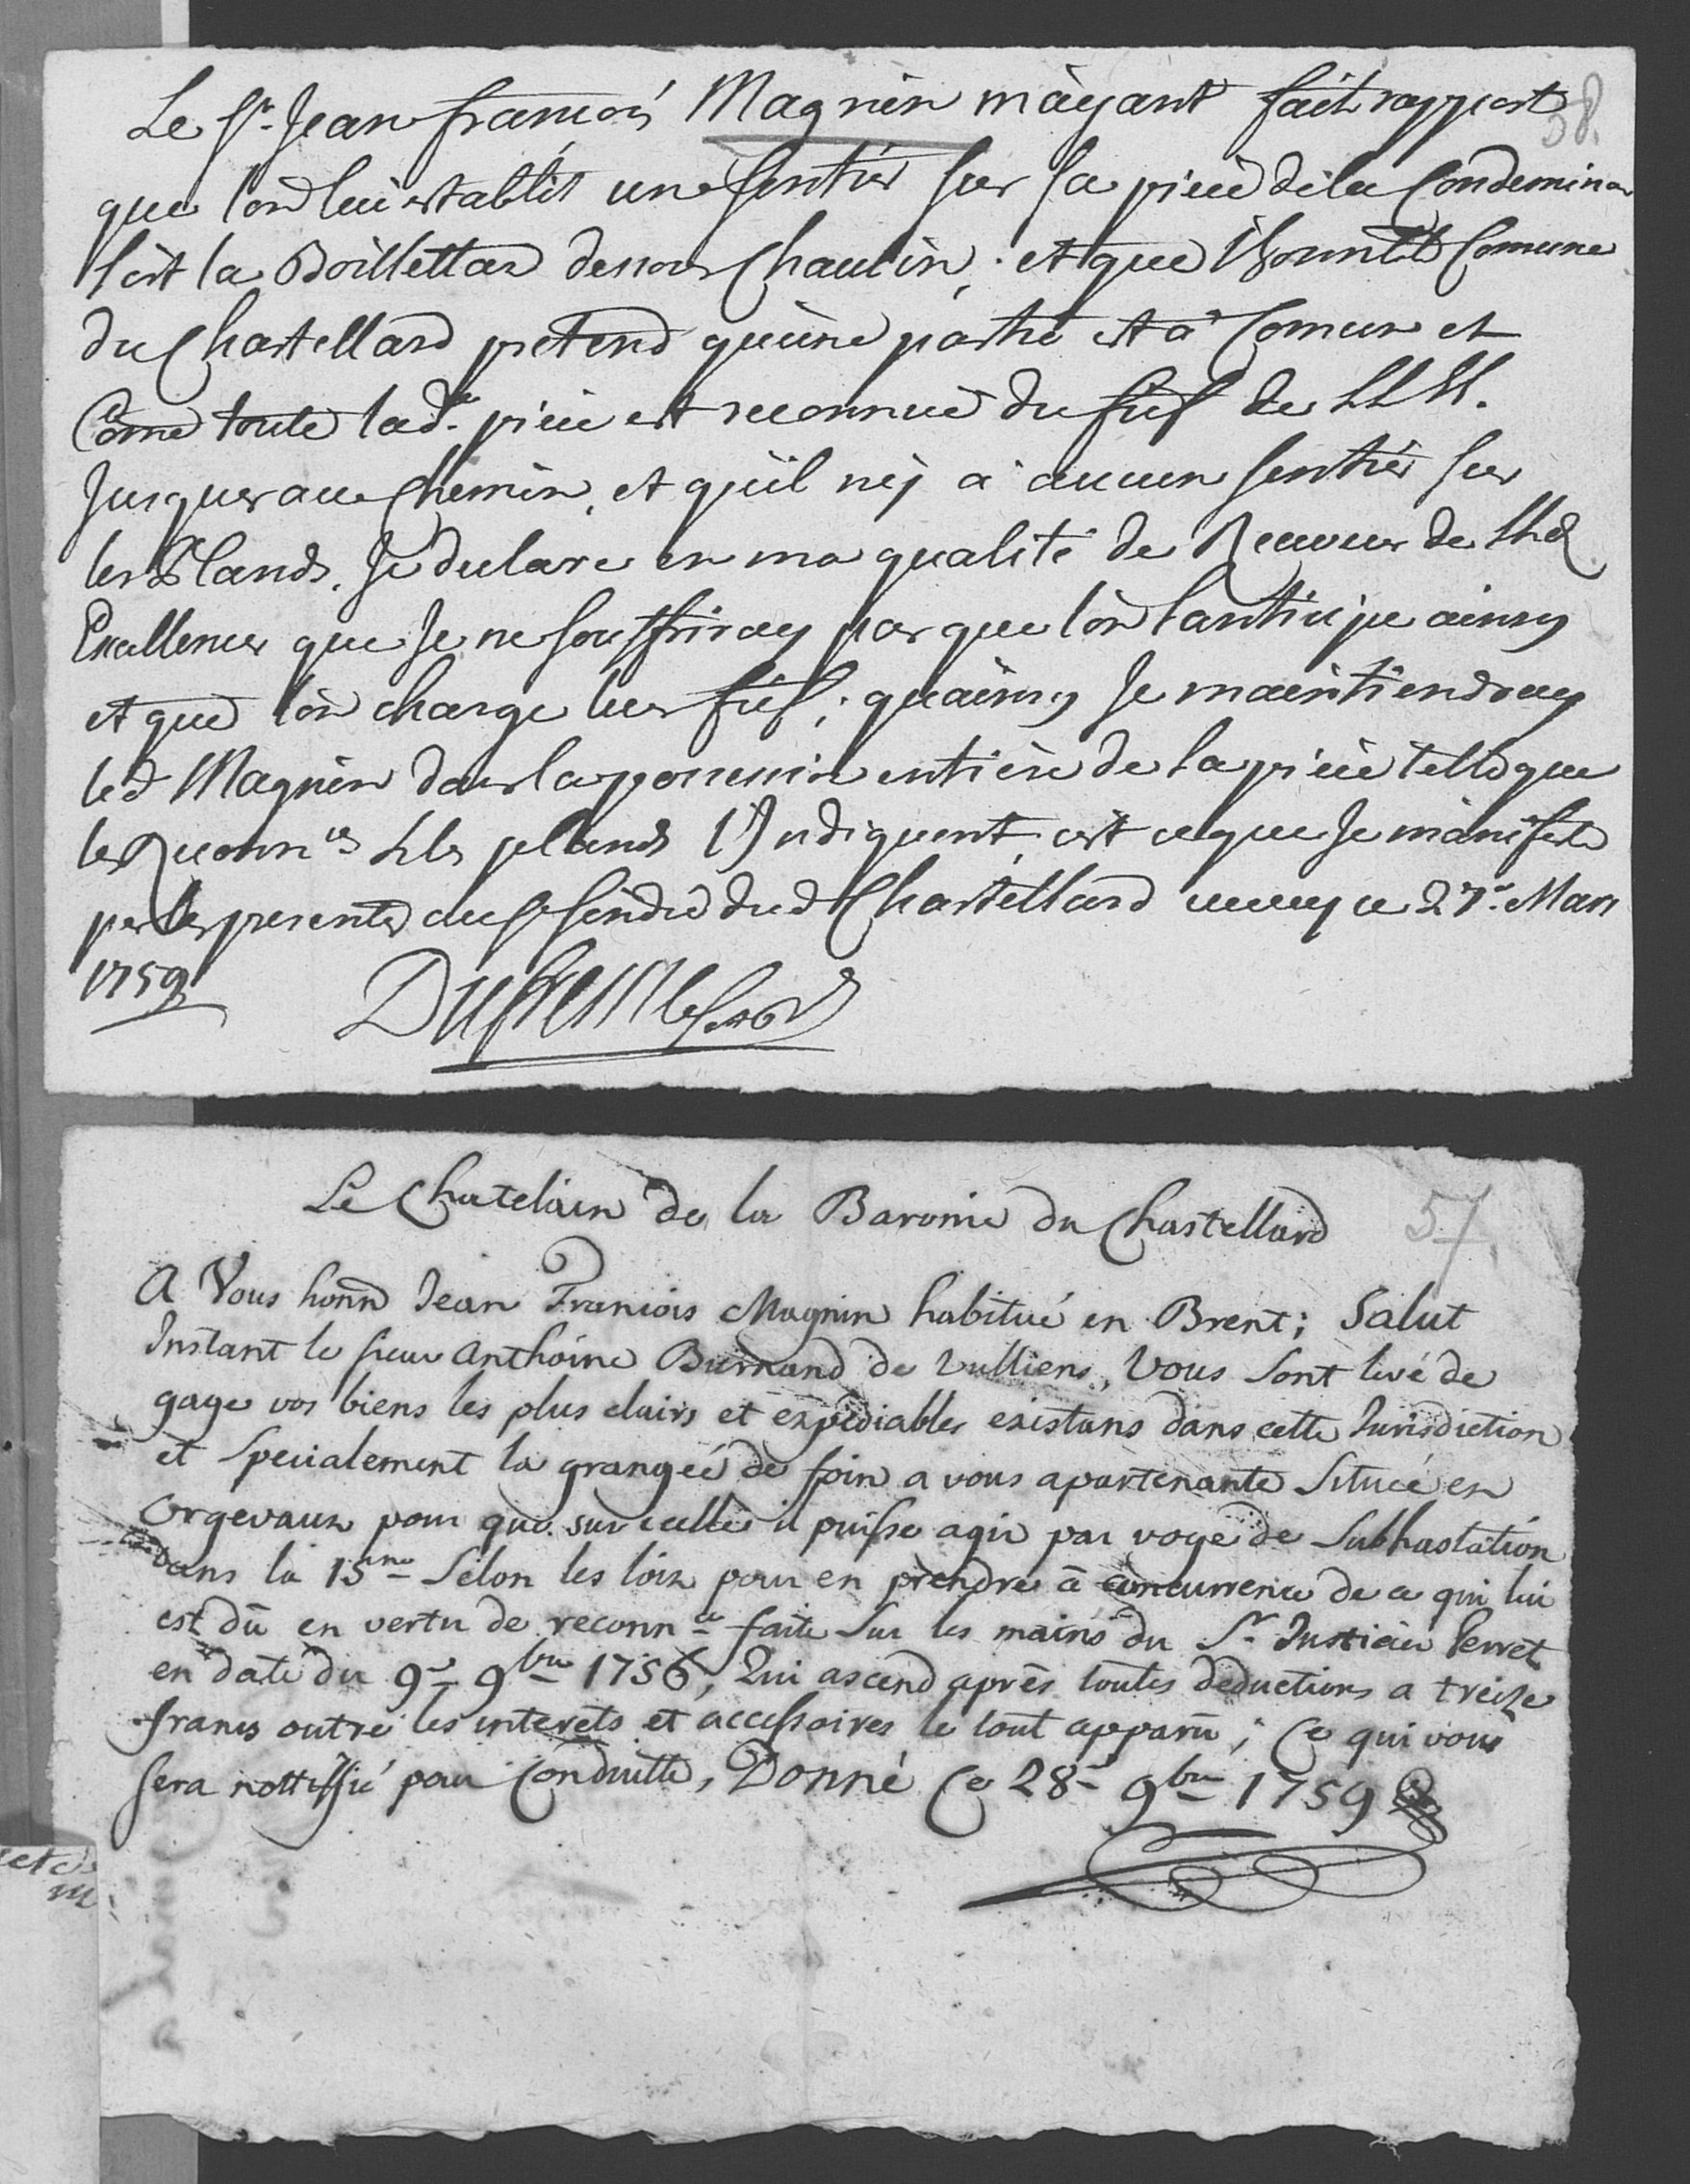 58.
Le Sr. Jean françois Magnin m'ayant fait rapport
que l'on lui establit un sentier sur sa pièce de la Condemina
soit la Doillettaz dessous Chaulin; et que l'honnble Comune
du Chastellard pretend qu'une partie est à Comun et
Come toute lade. pièce est reconnue du fief de LLEE.
Jusques au Chemin, et qu'il n'ÿ a aucun sentier sur
les Plands. Je declare en ma qualité de Receveur de
Excellences que Je ne souffriray pas que l'on l'anticipe ainsy
et que l'on charge leur fief; qu'ainsy Je maintiendray
led Magnin dans la possession entière de la pièce telle que
les Reconnces & les plands l'Indiquent, c'est ce que Je manifeste
par les presentes au Sr Sindic dud Chastellard ce 27e. Mars
1759
57.
Le Chatelain de la Baronie du Chastellard
A Vous honn Jean Francois Magnin habitué en Brent; Salut
Instant le sieur Anthoine Burnand de Vulliens, Vous sont levé de
gage vos biens les plus clairs et expediables existans dans cette Jurisdiction
et specialement la grangeé de foin a vous apartenante Située en
Orgevaux pour que sur icelle il puisse agir par voye de Subhastation
dans la 15ne Selon les loix pour en prendre à concurrence de ce qui lui
est dû en vertu de reconnce faite Sur les mains du Sr Justicier Perret
en date du 9e 9bre 1756, Qui ascend après toutes deductions a treize
francs outre les interets et accessoires le tout apparu; Ce qui vous
sera nottiffié pour Conduitte, Donné Ce 28e 9bre 1759
et de
m